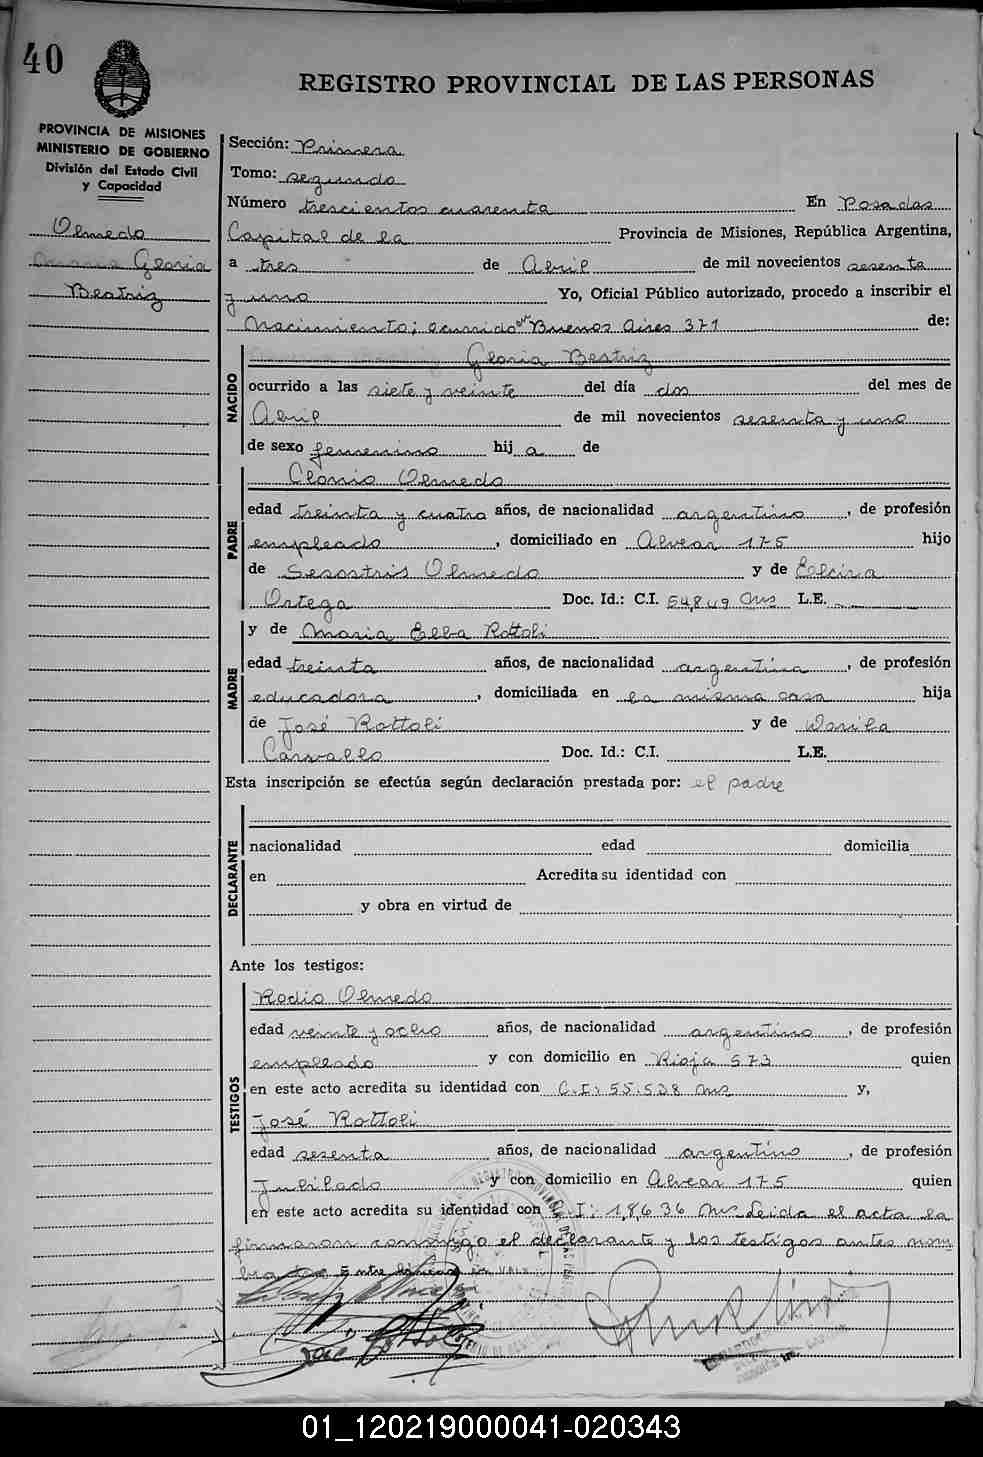 40
REGISTRO PROVINCIAL DE LAS PERSONAS
PROVINCIA DE MISIONES
MINISTERIO DE GOBIERNO
División del Estado Civil
y Capacidad
Olmedo
Gloria
Beatriz
Sección: Primera
Tomo: segundo
Número trescientos cuarenta En Posadas
Capital de la Provincia de Misiones, República Argentina,
a tres de Abril de mil novecientos sesenta
y uno Yo, Oficial Público autorizado, procedo a inscribir el
Nacimiento; ocurrido en Buenos Aires 371 de:
NACIDO
Gloria Beatriz
ocurrido a las siete y veinte del día dos del mes de
Abril de mil novecientos sesenta y uno
de sexo femenino hij a de
PADRE
Clonio Olmedo
edad treinta y cuatro años, de nacionalidad argentino, de profesión
empleado, domiciliado en Alvear 175 hijo
de Sesostris Olmedo y de
Ortega Doc. Id.: C.I. 54849 Mns L.E.
MADRE
y de Maria Elba Rottoli
edad treinta años, de nacionalidad argentina, de profesión
educadora, domiciliada en la misma casa hija
de José Rottoli y de
Carvallo Doc. Id.: C.I. L.E.
Esta inscripción se efectúa según declaración prestada por: el padre
DECLARANTE
nacionalidad edad domicilia
en Acredita su identidad con
y obra en virtud de
Ante los testigos:
TESTIGOS
Rodio Olmedo
edad veinte y ocho años, de nacionalidad argentino, de profesión
empleado y con domicilio en Rioja 573 quien
en este acto acredita su identidad con C.I: 55.528 Mns y,
José Rottoli
edad sesenta años, de nacionalidad argentino, de profesión
Jubilado y con domicilio en Alvear 175 quien
en este acto acredita su identidad con C.I: 18636 Mns Leida el acta la
firmaron conmigo el declarante y los testigos antes nom
brados Entre lineas en vale
01_120219000041-020343